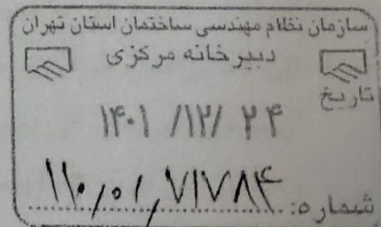 سازمان نظام مهندسی ساختمان استان تهران
دبیرخانه مرکزی
تاریخ
۱۴۰۱ /۱۲/ ۲۴
شماره: ۱۱۰,۰۱,۷۱۷۸۴